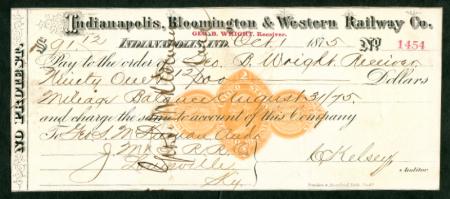 Indianapolis, Bloomington & Western Railway Co.
GEO. B. WRIGHT, Receiver.
91.12 INDIANAPOLIS, IND. Oct 1 1875 No 1454
Pay to the order of Geo. B. Wright, Receiver
Ninety One 12/100 Dollars
Mileage Balance August 31/75.
and charge the same to account of this Company
To Geo. S. Aud.
J. M. R.R.
Ky.
C Kelsey
Auditor
NO PROTEST.